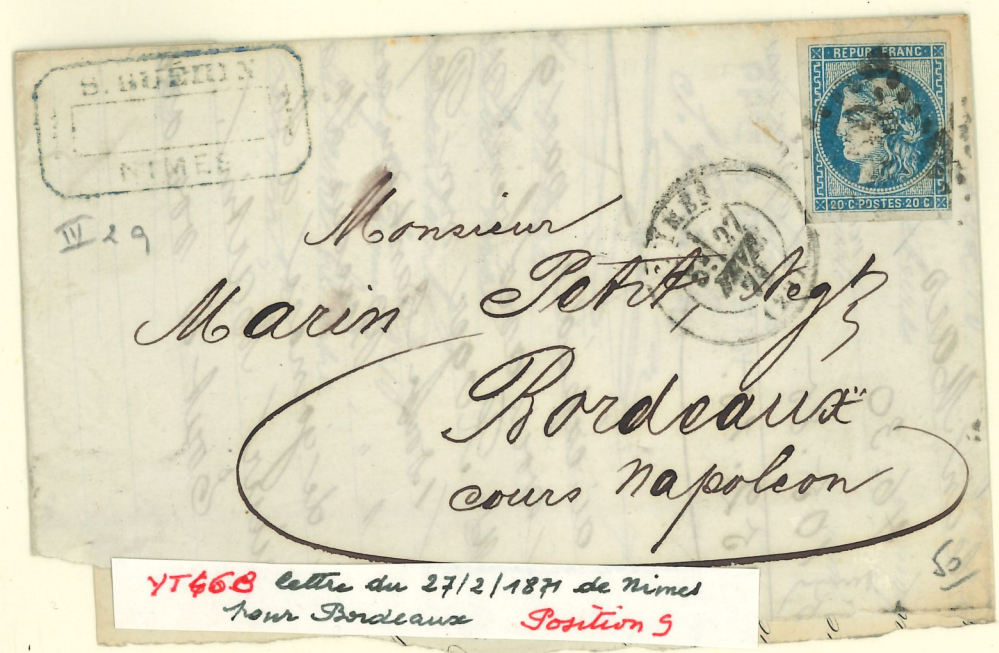 NIMES
REPUB·FRANC·
20·C·POSTES·20·C
NIMES
27
FEVR
71
IV 29
Monsieur
Marin Petit, Negt
Bordeaux
cours Napoléon
50
YT46B lettre du 27/2/1871 de Nimes
pour Bordeaux Position 9